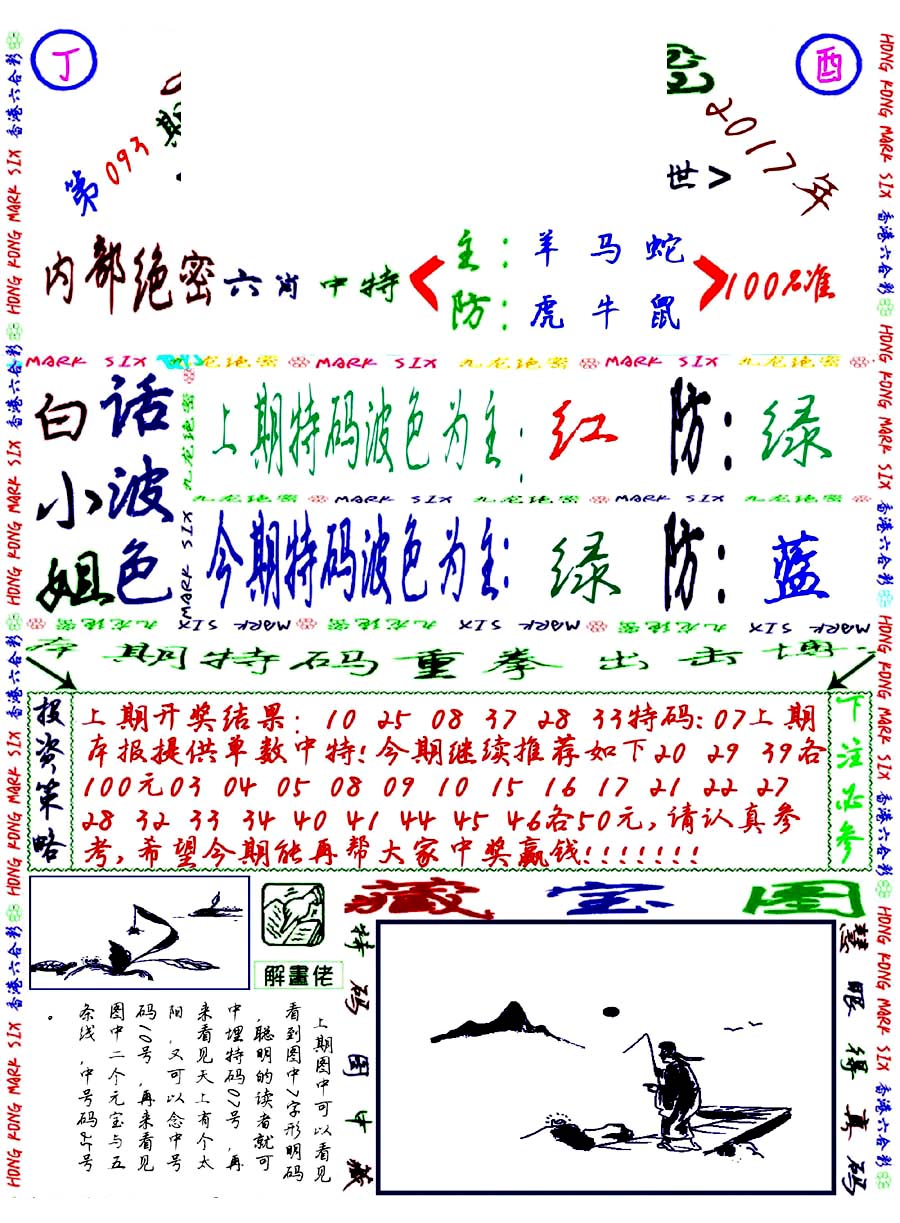 丁
酉
第093期
2017年
世>
内部绝密六肖中特
主：羊 马 蛇
防：虎 牛 鼠
100%准
MARK SIX 九龙绝密 MARK SIX 九龙绝密 MARK SIX 九龙绝密
白话
小波
姐色
上期特码波色为主：红 防：绿
九龙绝密 MARK SIX 九龙绝密 MARK SIX 九龙绝密
今期特码波色为主：绿 防：蓝
MARK SIX 九龙绝密 MARK SIX 九龙绝密 MARK SIX 九龙绝密
本期特码重拳出击
投资策略
上期开奖结果：10 25 08 37 28 33特码:07上期
本报提供单数中特!今期继续推荐如下20 29 39各
100元03 04 05 08 09 10 15 16 17 21 22 27
28 32 33 34 40 41 44 45 46各50元,请认真参
考,希望今期能再帮大家中奖赢钱!!!!!!!
下注必参
解畫佬
藏宝图
特码图中藏
慧眼得真码
上期图中可以看见
看到图中7字形明码
,聪明的读者就可
中埋特码07号,再
来看见天上有个太
阳,又可以念中号
码10号,再来看见
图中二个元宝与五
条线,中号码25号
。
HONG KONG MARK SIX 香港六合彩
HONG KONG MARK SIX 香港六合彩